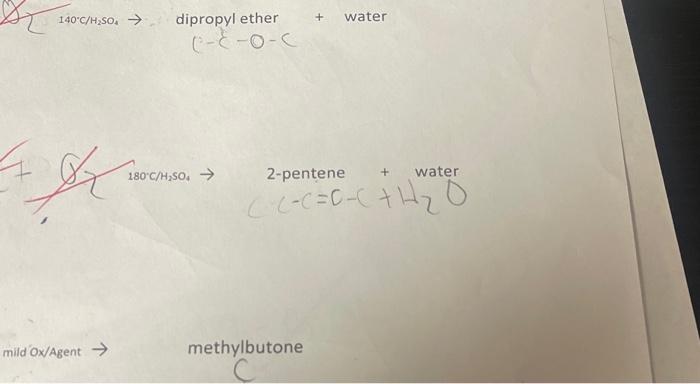 O₂ 140°C/H₂SO₄ → dipropyl ether + water
C-C-O-C
+ O₂ 180°C/H₂SO₄ → 2-pentene + water
C C-C=C-C + H₂O
mild Ox/Agent → methylbutone
C